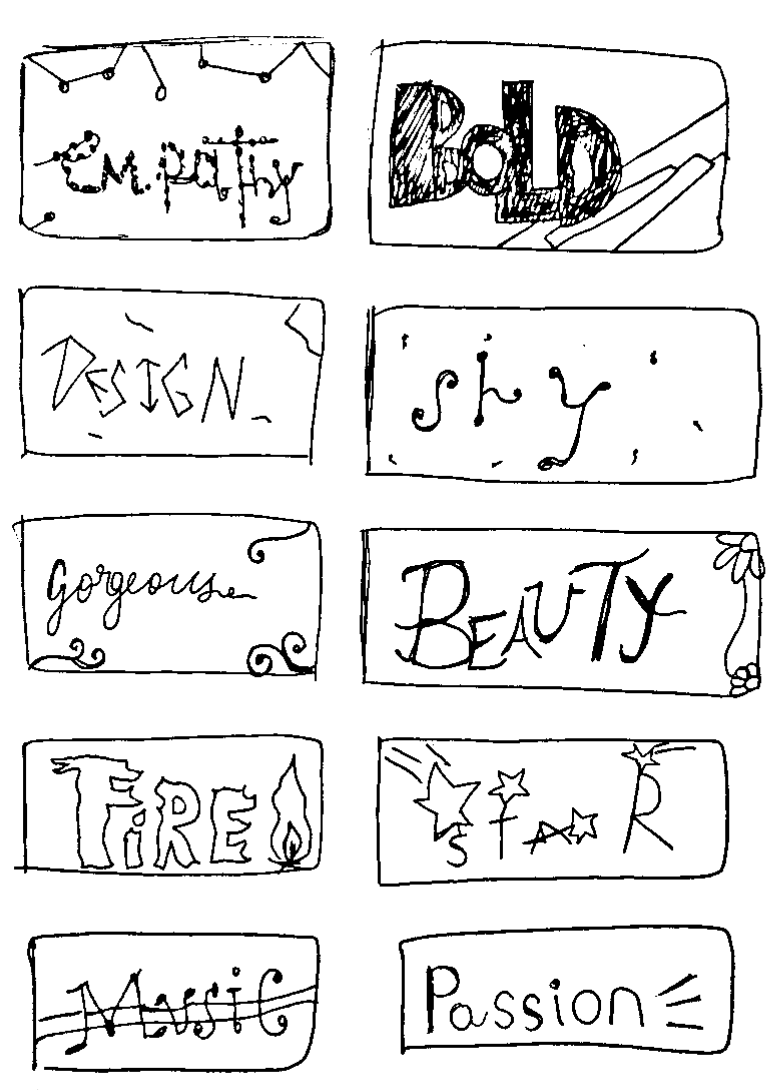 EMPathy
BoLD
DESIGN
shy
gorgeous
BEAUTY
FiRE
STAR
MUSiC
Passion